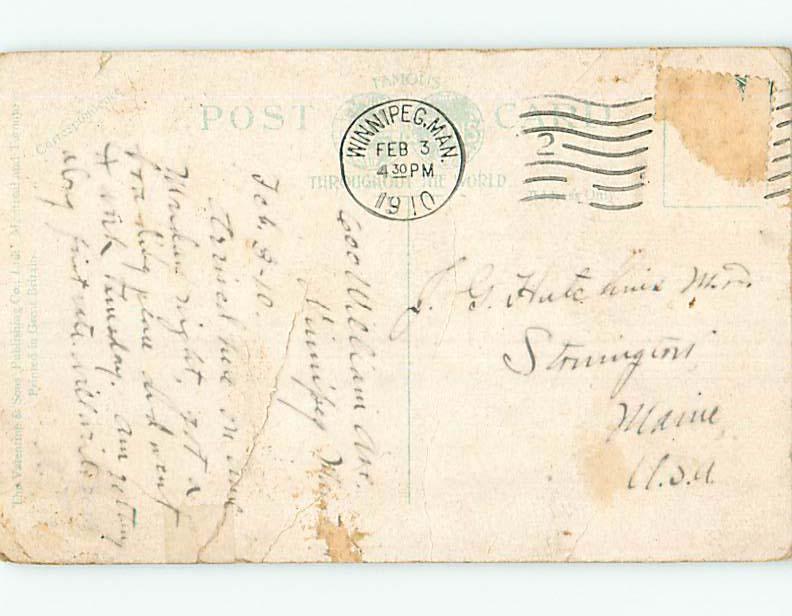 FAMOUS
POST CARD
THROUGHOUT THE WORLD
Correspondence
Address Only
WINNIPEG, MAN.
FEB 3
4 30 PM
1910
2
600 William Ave.
Winnipeg Man
Feb. 3-10.
Arrived here on time
Monday night, got a
boarding place and went
to work Tuesday. Am getting
along first rate. will write
J. G. Hutchins M.D.
Stonington
Maine
U.S.A.
The Valentine & Sons Publishing Co., Ltd., Montreal and Toronto
Printed in Great Britain.